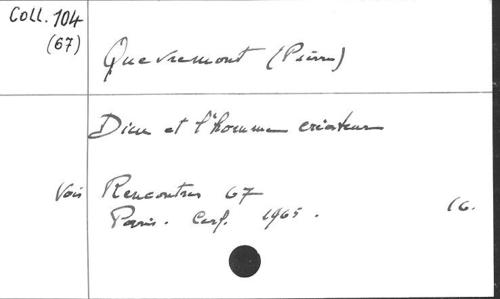 Coll. 104
(67)
Quevremont (Pierre)
Dieu et l'homme créateur
Voir Rencontres 67
Paris. Cerf. 1965. 16.